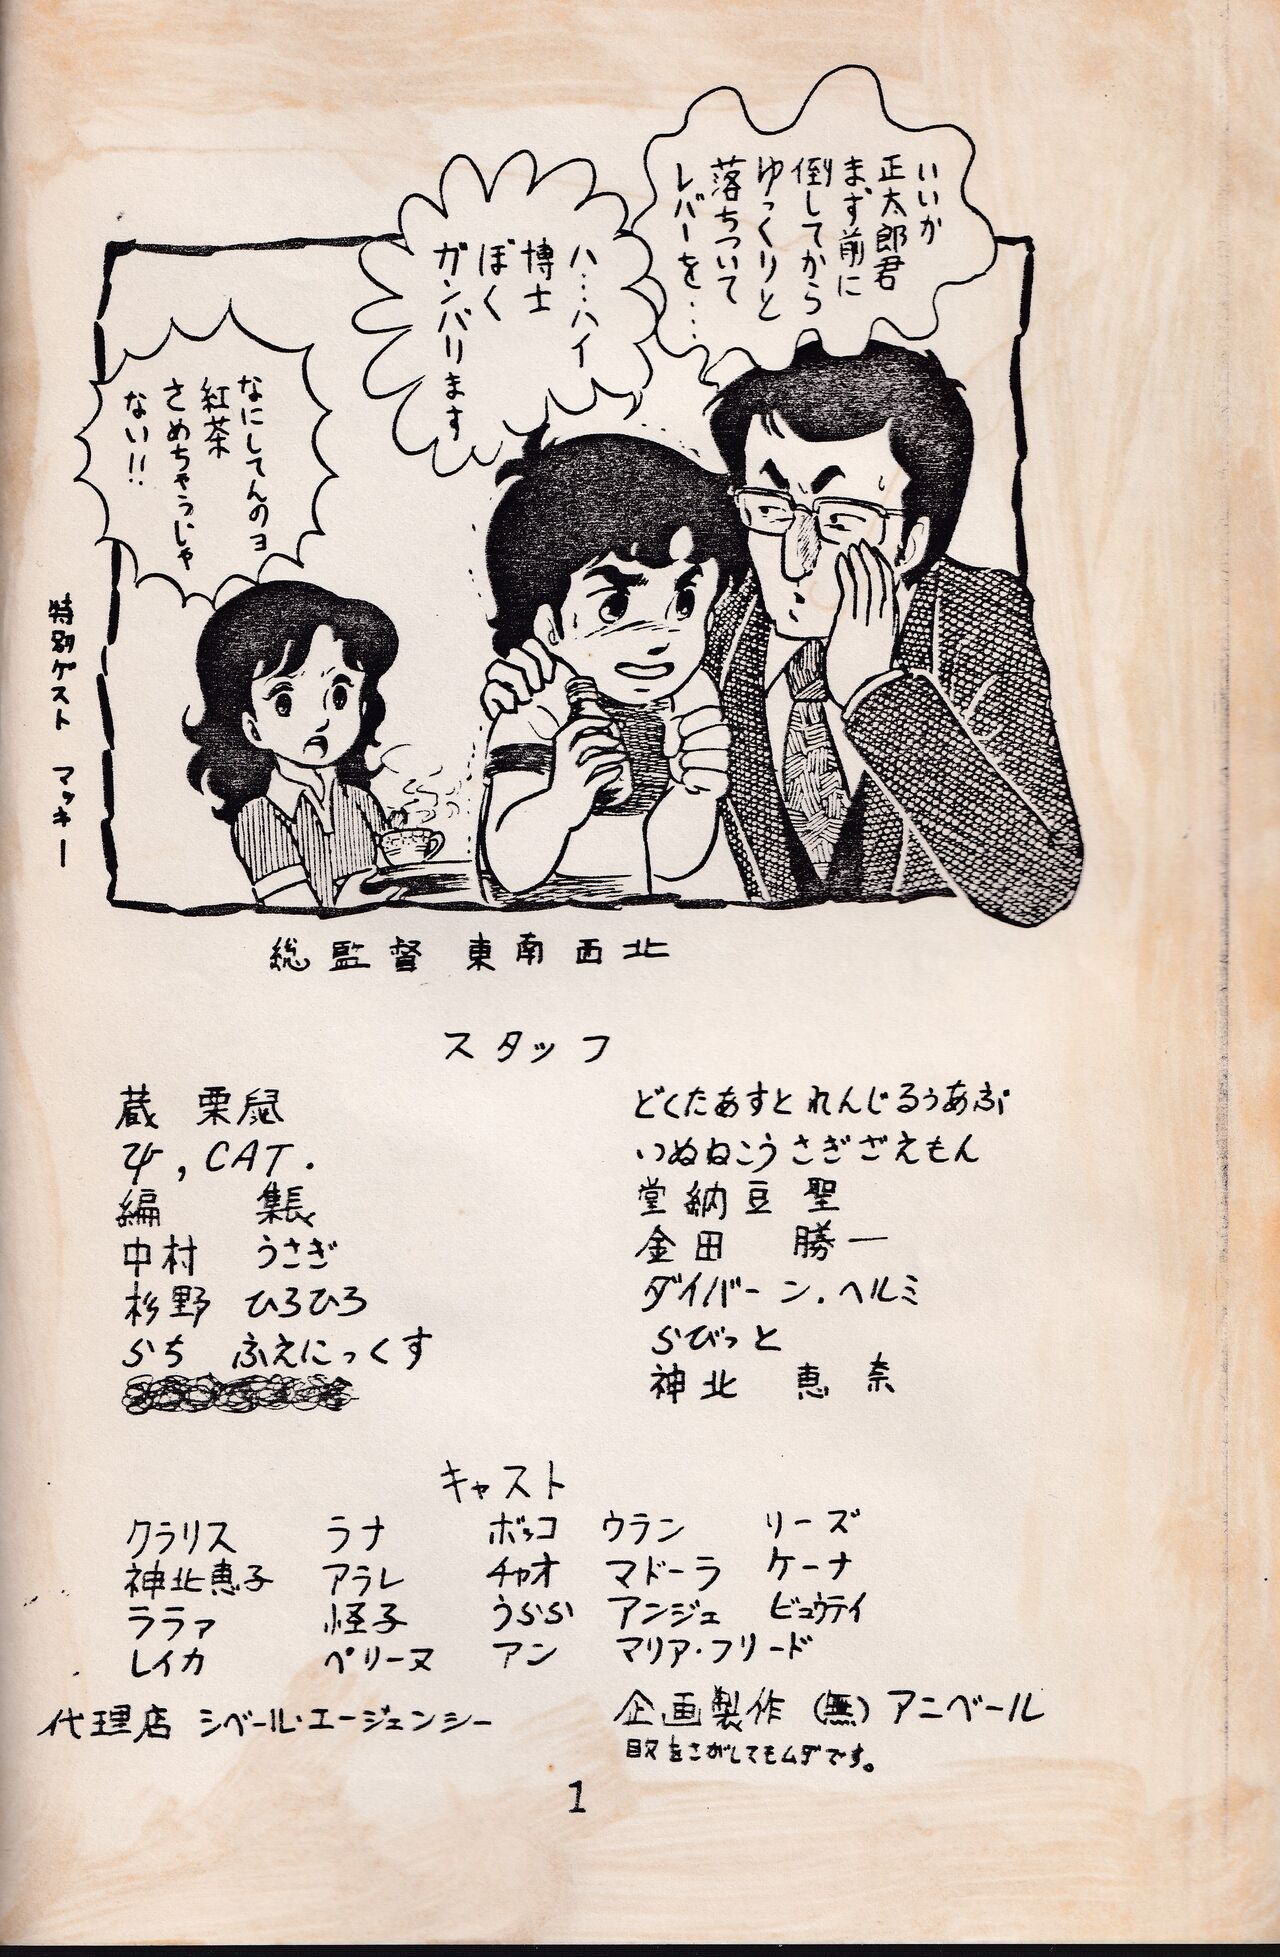 いいか
正太郎君
まず前に
倒してから
ゆっくりと
落ちついて
レバーを・・・
ハ・・・ハイ
博士
ぼく
ガンバリます
なにしてんのョ
紅茶
さめちゃうじゃ
ない!!
特別ゲスト マッキー
総監督 東南西北
スタッフ
蔵 栗鼠
午, CAT.
編 集長
中村 うさぎ
杉野 ひろひろ
らち ふえにっくす
どくたあすとれんじるぅあぶ
いぬねこうさぎざえもん
堂納豆聖
金田 勝一
ダイバーン.ヘルミ
らびっと
神北 恵奈
キャスト
クラリス ラナ ボッコ ウラン リーズ
神北恵子 アラレ チャオ マドーラ ケーナ
ララァ 怪子 うらら アンジェ ビュウティ
レイカ ペリーヌ アン マリア・フリード
代理店 シベール・エージェンシー
企画製作 (無) アニベール
目次をさがしてもムダです。
1